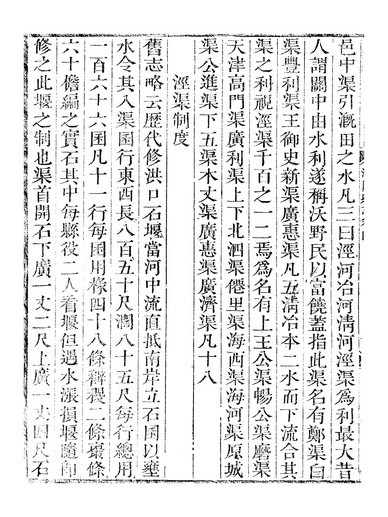 邑中渠引漑田之水凡三曰涇河冶河淸河涇渠爲利最大昔
人謂關中由水利遂稱沃野民以富饒蓋指此渠名有鄭渠白
渠豐利渠王御史新渠廣惠渠凡五淸冶本二水而下流合其
渠之利視涇渠千百之一二焉爲名有上王公渠暢公渠磨渠
天津高門渠廣利渠上下北泗渠僊里渠海西渠海河渠原城
渠公進渠下五渠木丈渠廣惠渠廣濟渠凡十八
涇渠制度
舊志略云歷代修洪口石堰當河中流直抵南岸立石囷以壅
水令其入渠囷行東西長八百五十尺濶八十五尺每行總用
一百六十六囷凡十一行每囷用椽四十八條辮䙅二條棗條
六十檐編之實石其中每縣役二人看堰但遇水漲損堰隨卽
修之此堰之制也渠首開石下廣一丈二尺上廣一丈四尺石